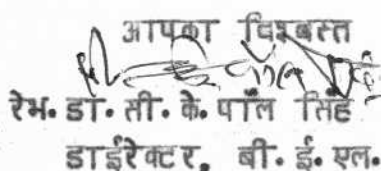 आपका विश्वस्त
रेभ. डा. सी. के. पॉल सिंह
डाईरेक्टर. बी. ई. एल.